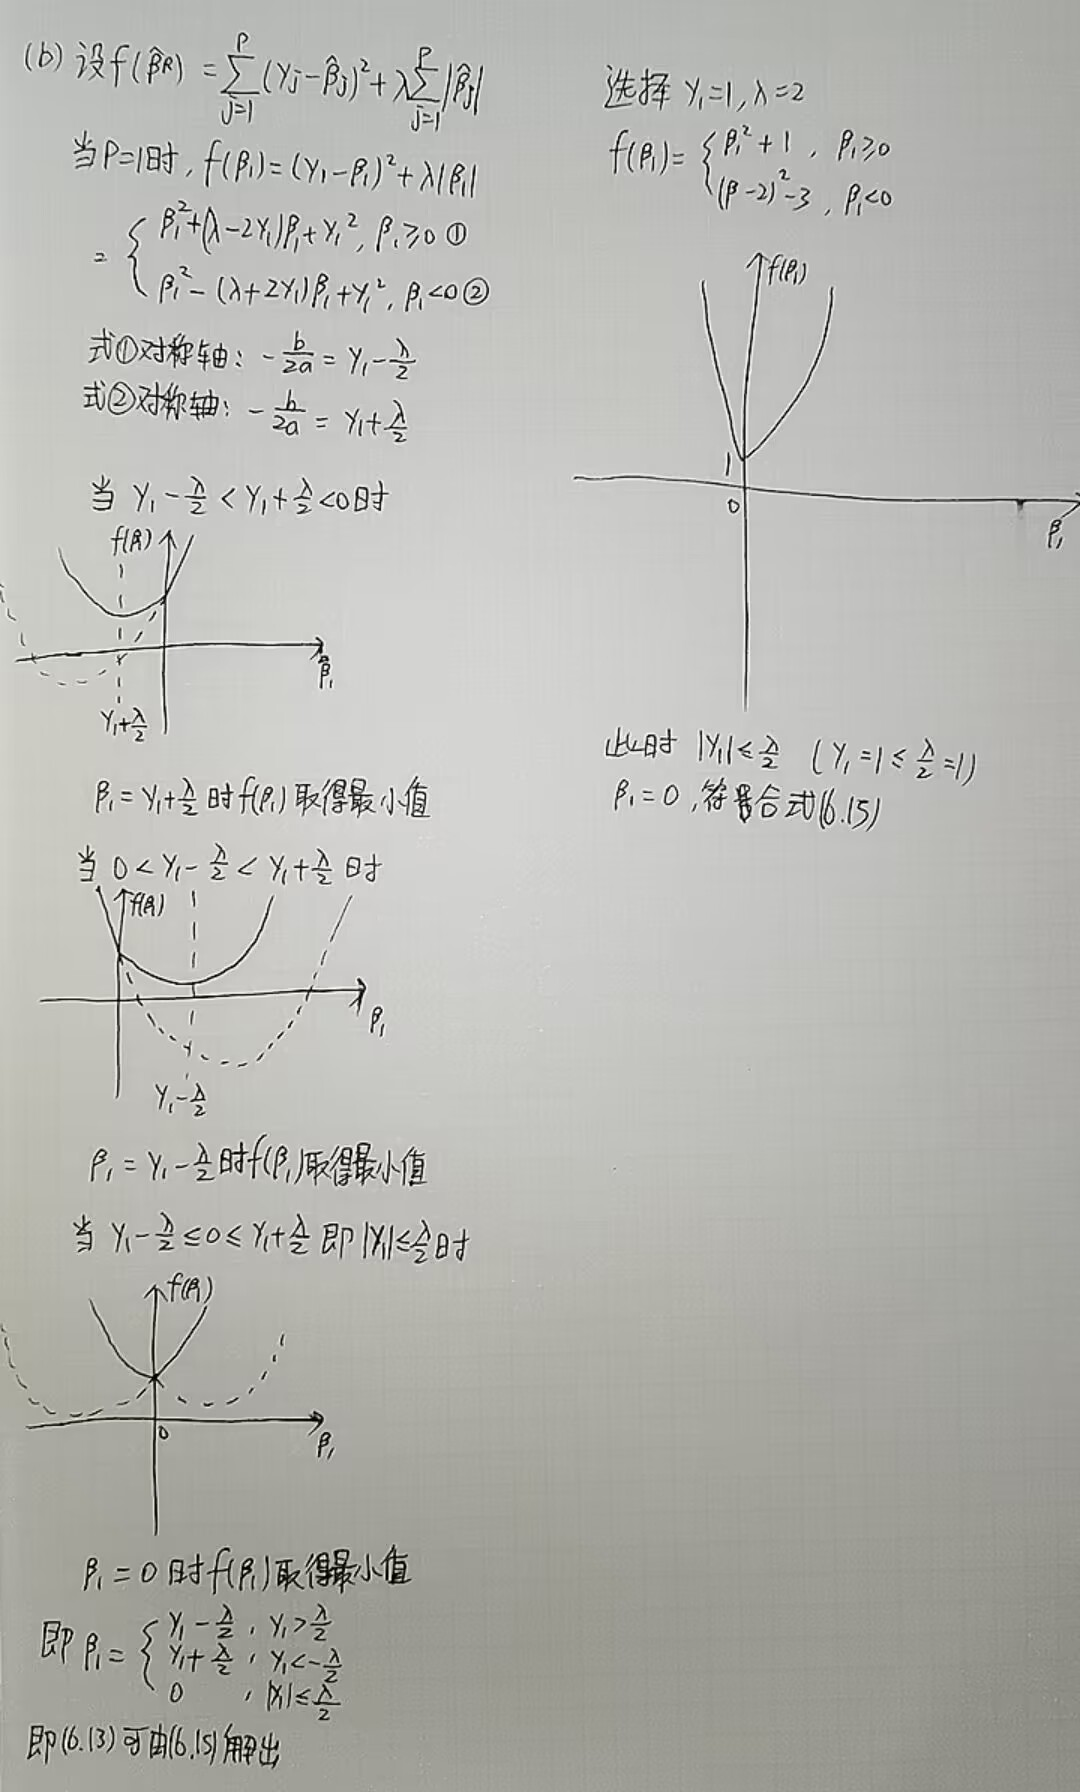 (b) 设f(β̂ᴿ) = Σ_{j=1}^{P} (yj - β̂j)² + λ Σ_{j=1}^{P} |β̂j|
当P=1时, f(β₁) = (y₁ - β₁)² + λ|β₁|
= { β₁² + (λ - 2y₁)β₁ + y₁², β₁ ≥ 0 ①
β₁² - (λ + 2y₁)β₁ + y₁², β₁ < 0 ②
式①对称轴: -b/2a = y₁ - λ/2
式②对称轴: -b/2a = y₁ + λ/2
当 y₁ - λ/2 < y₁ + λ/2 < 0时
f(β₁)
β₁
y₁ + λ/2
β₁ = y₁ + λ/2 时f(β₁)取得最小值
当 0 < y₁ - λ/2 < y₁ + λ/2 时
f(β₁)
β₁
y₁ - λ/2
β₁ = y₁ - λ/2 时f(β₁)取得最小值
当 y₁ - λ/2 ≤ 0 ≤ y₁ + λ/2 即 |y₁| ≤ λ/2 时
f(β₁)
0
β₁
β₁ = 0 时f(β₁)取得最小值
即 β₁ = { y₁ - λ/2, y₁ > λ/2
y₁ + λ/2, y₁ < -λ/2
0, |y₁| ≤ λ/2
即(6.13)可由(6.15)解出
选择 y₁ = 1, λ = 2
f(β₁) = { β₁² + 1, β₁ ≥ 0
(β - 2)² - 3, β₁ < 0
f(β₁)
1
0
β₁
此时 |y₁| ≤ λ/2 (y₁ = 1 ≤ λ/2 = 1)
β₁ = 0, 符合式(6.15)